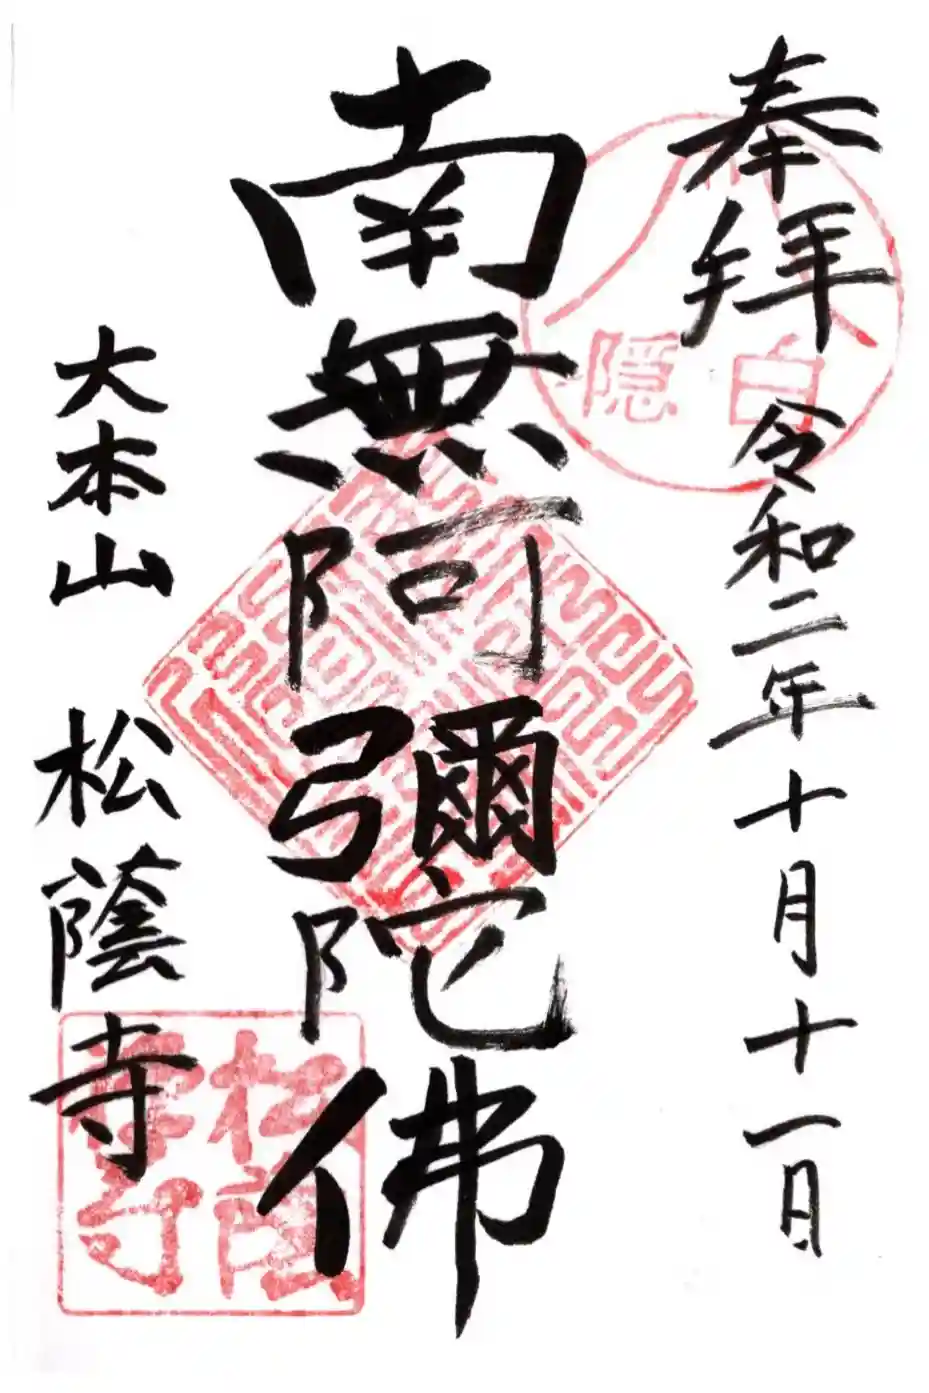 奉拜 令和二年十月十一日
白隠
南無阿彌陀佛
大本山 松蔭寺
松蔭
寺